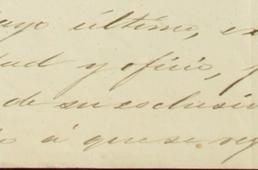 ayo último, e
dad y oficio, p
de su esclusi
o á que se reg